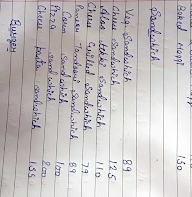 Maggi 130
Sandwhich
Veg. Sandwhich 89
Cheese Sandwhich 125
Aloo tikki Sandwhich 110
Cheese Grilled Sandwhich 79
Paneer Tandoori Sandwhich 89
Corn Sandwhich 100
Pizza Sandwhich 200
Cheese pasta sandwhich 150
Burger